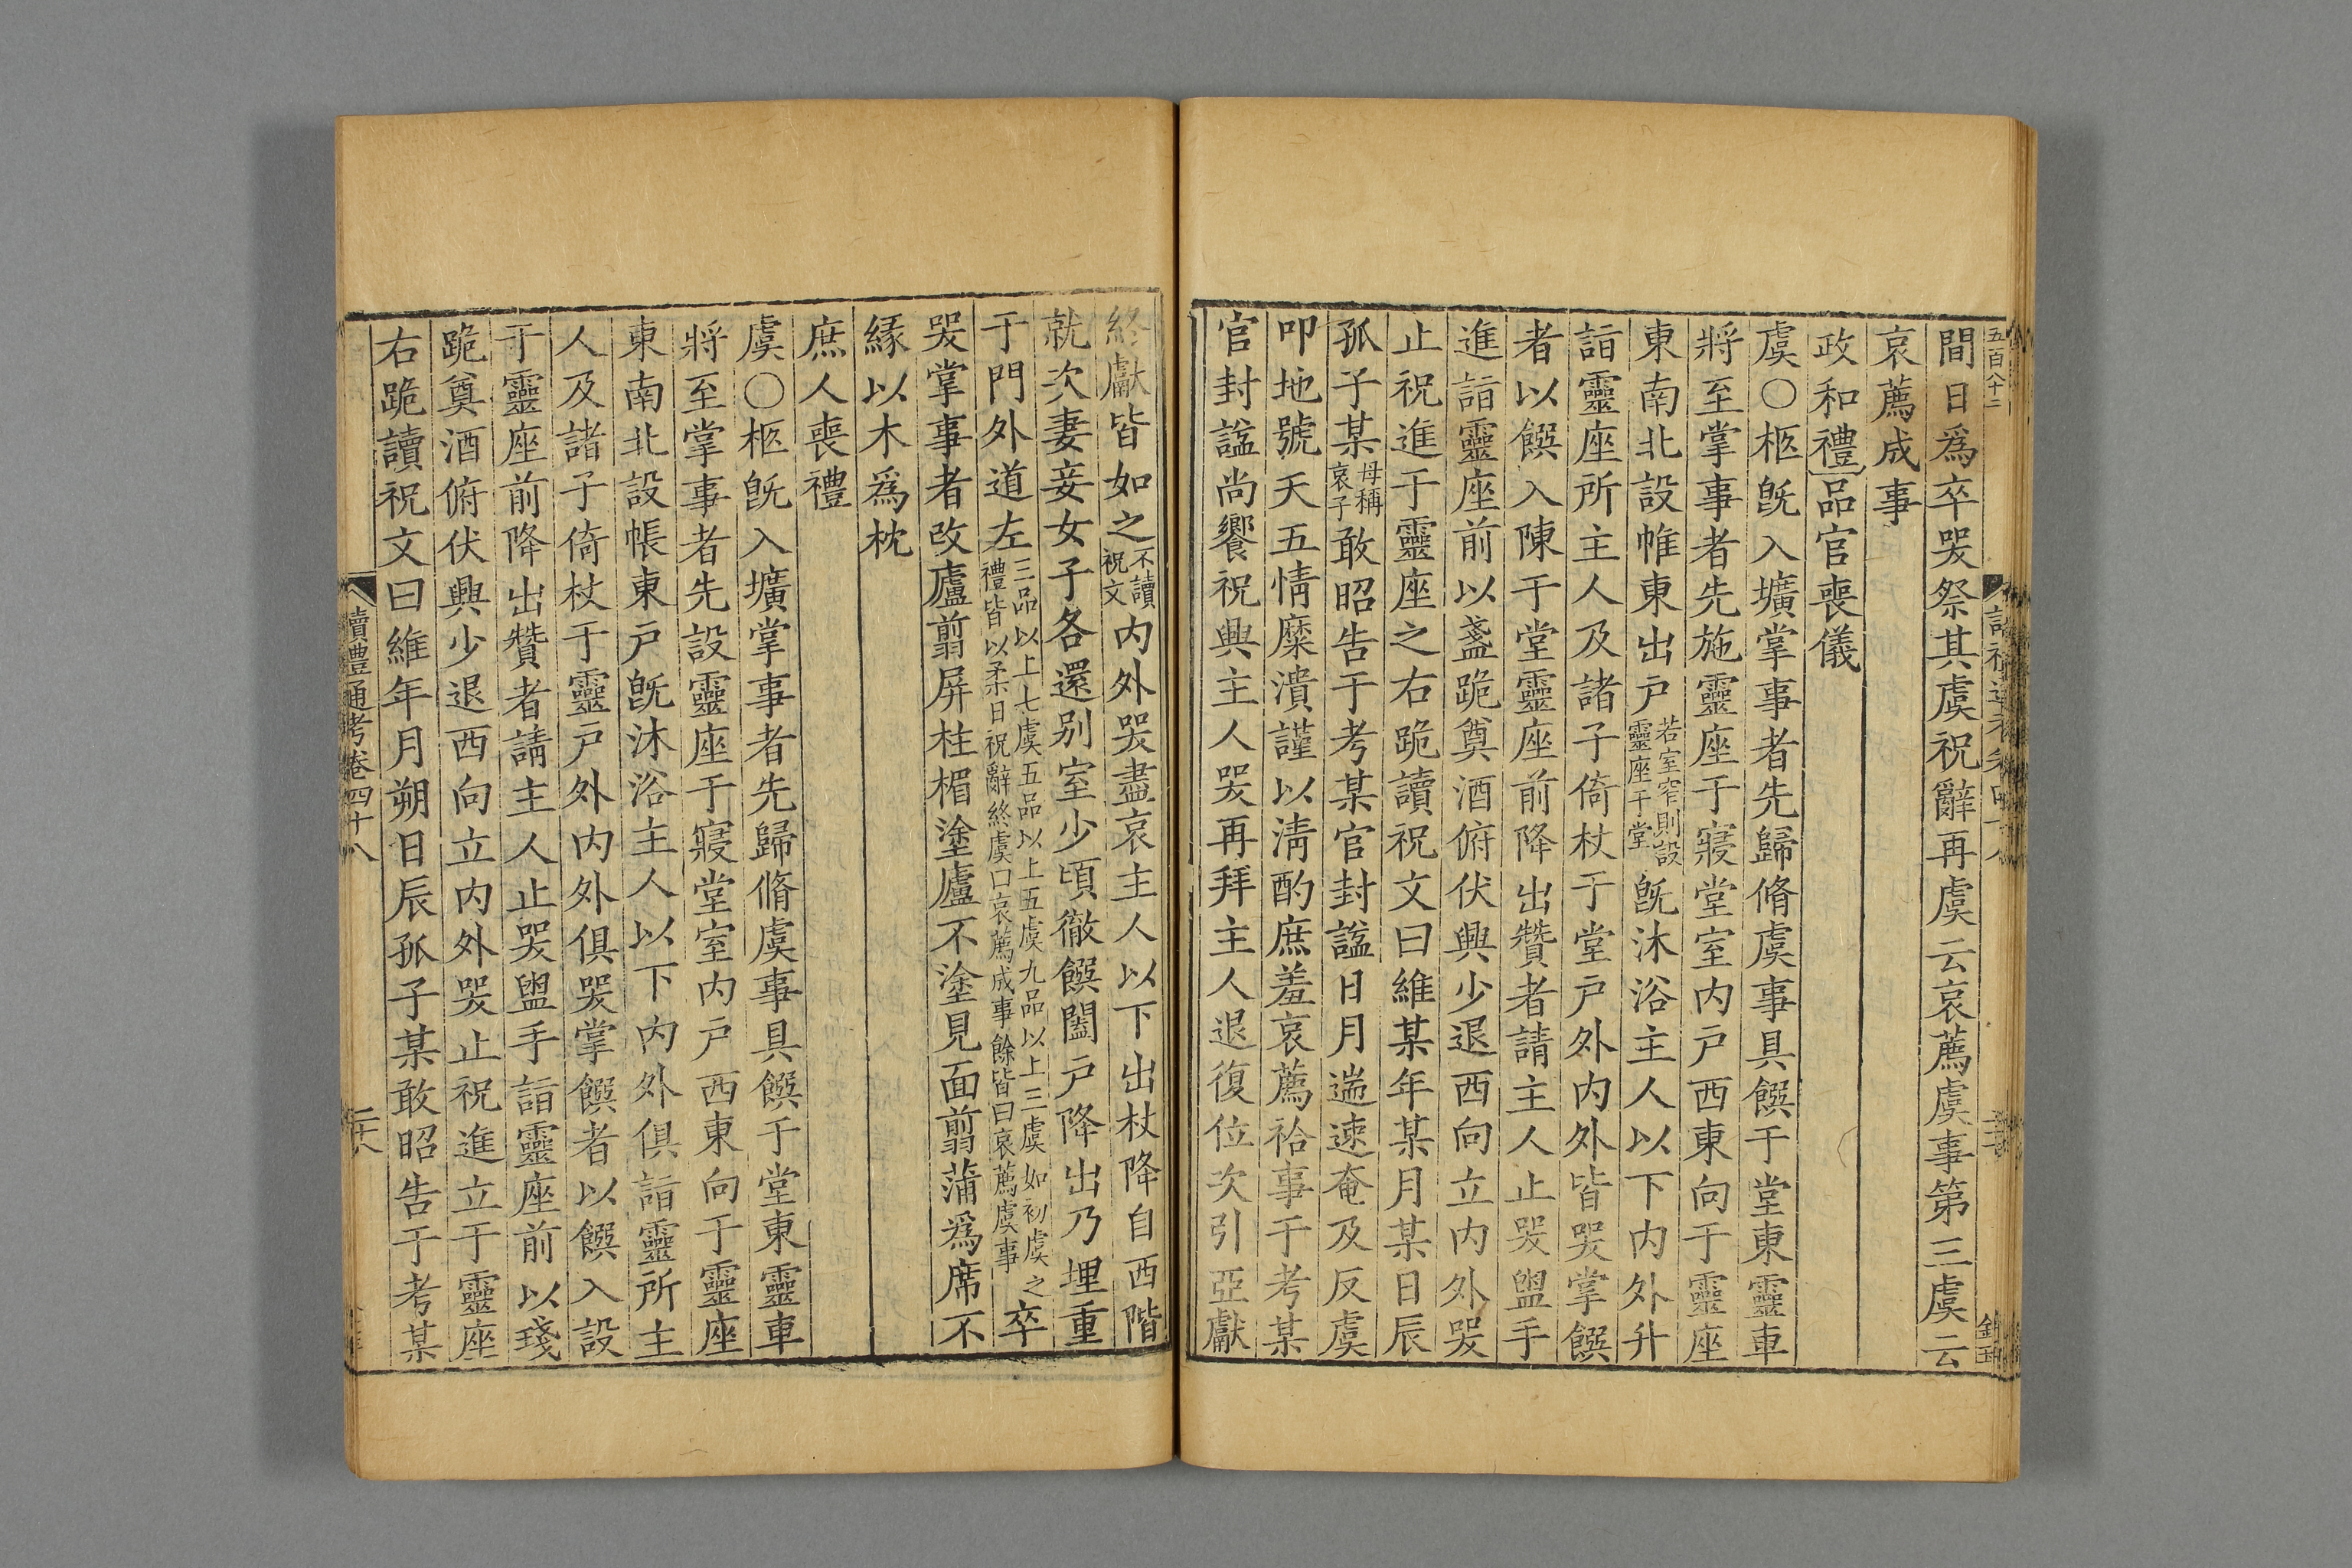 五百八十二
間日爲卒哭祭其虞祝辭再虞云哀薦虞事第三虞云
哀薦成事
政和禮品官喪儀
虞○柩旣入壙掌事者先歸脩虞事具饌于堂東靈車
將至掌事者先施靈座于寢堂室內戶西東向于靈座
東南北設帷東出戶若室窄則設靈座于堂旣沐浴主人以下內外升
詣靈座所主人及諸子倚杖于堂戶外內外皆哭掌饌
者以饌入陳于堂靈座前降出贊者請主人止哭盥手
進詣靈座前以盞跪奠酒俯伏興少退西向立內外哭
止祝進于靈座之右跪讀祝文曰維某年某月某日辰
孤子某母稱哀子敢昭告于考某官封諡日月遄速奄及反虞
叩地號天五情糜潰謹以淸酌庶羞哀薦祫事于考某
官封諡尚饗祝興主人哭再拜主人退復位次引亞獻
終獻皆如之不讀祝文內外哭盡哀主人以下出杖降自西階
就次妻妾女子各還別室少頃徹饌闔戶降出乃埋重
于門外道左三品以上七虞五品以上五虞九品以上三虞如初虞之禮皆以柔日祝辭終虞曰哀薦成事餘皆曰哀薦虞事卒
哭掌事者改廬翦屏柱楣塗廬不塗見面翦蒲爲席不
緣以木爲枕
庶人喪禮
虞○柩旣入壙掌事者先歸脩虞事具饌于堂東靈車
將至掌事者先設靈座于寢堂室內戶西東向于靈座
東南北設帳東戶旣沐浴主人以下內外俱詣靈所主
人及諸子倚杖于靈戶外內外俱哭掌饌者以饌入設
于靈座前降出贊者請主人止哭盥手詣靈座前以琖
跪奠酒俯伏興少退西向立內外哭止祝進立于靈座
右跪讀祝文曰維年月朔日辰孤子某敢昭告于考某
讀禮通考卷四十八
二十八